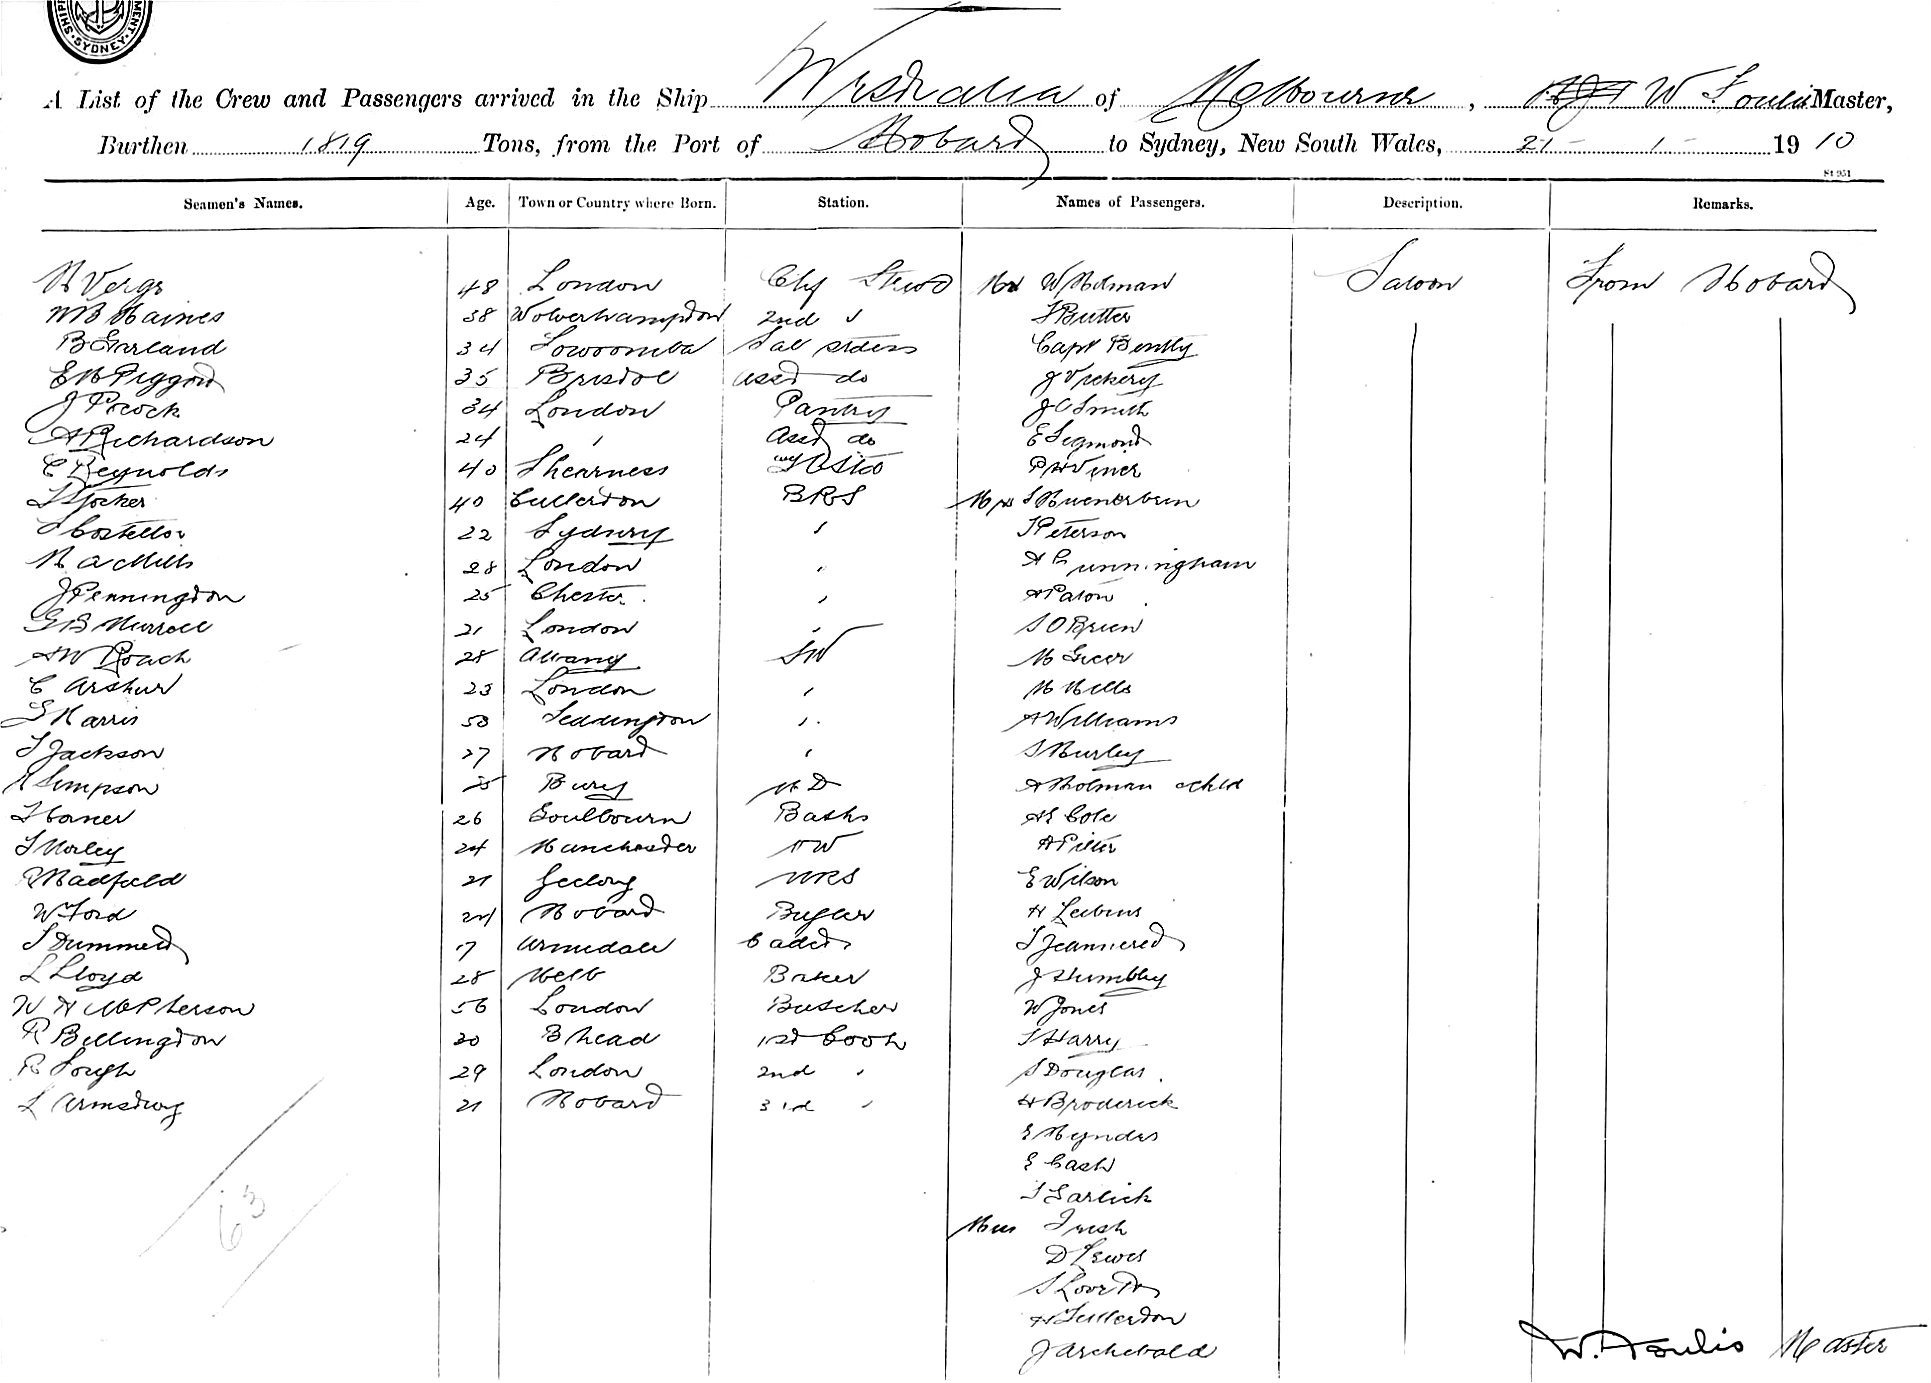 SYDNEY
A List of the Crew and Passengers arrived in the Ship Westralia of Melbourne, W Foulis Master,
Burthen 1819 Tons, from the Port of Hobart to Sydney, New South Wales, 21 - 1 - 1910
St 951
Seamen's Names. Age. Town or Country where Born. Station. Names of Passengers. Description. Remarks.
48 London Chf Stewd Mr W Holman Saloon From Hobart
W B Haines 38 Wolverhampton 2nd " T Butter
B Garland 34 Towoomba Sal Capt Bently
E H Piggott 35 Bristol Asst do J Vickery
J Pocock 34 London Pantry J C Smith
A Richardson 24 " Asst do E Sigmont
C Reynolds 40 Shearness P H Viner
T Stocker 40 Cullerton BRS Mrs
S Costello 22 Sydney " T Peterson
H A Mills 28 London " A Cunningham
J Pennington 25 Chester " A Paton
G B Murrell 21 London " S O Brien
A W Roach 28 Albany SW M Greer
C Arthur 23 London " M Mills
S Harris 50 Teddington " A Williams
T Jackson 27 Hobart " S Burley
Simpson Bury A Holman child
26 Goulbourn Baths A E Cole
T Morley 24 Manchester
R Madfield 21 Geelong E Wilson
W Ford 24 Hobart Bugler
S Dummett 17 Armidale Cadet T Jeanneret
L Lloyd 28 Melb Baker J Humbley
W H McPherson 56 London Butcher W Jones
R Billington 30 B head 1st Cook T Harry
R Gough 29 London 2nd " S Douglas
L Armstrong 21 Hobart 3rd " H Broderick
E Hyndes
E Cash
T Garlick
Miss Irish
D Lewis
H Fullerton
J Archebald
63
W. Foulis Master